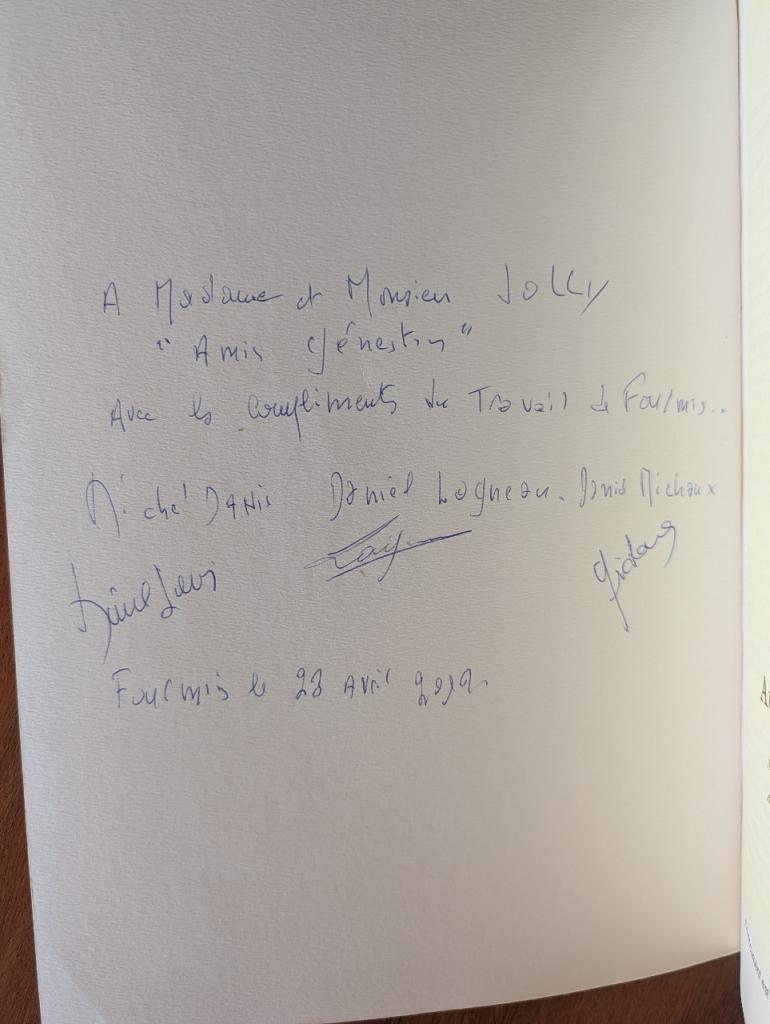 A Madame et Monsieur JOLLY
"Amis Génestin"
Avec les compliments du Travail de Fourmis..
Miche' DANIS Daniel Logneau. Denis Michaux
Fourmis le 28 Avril 2012.